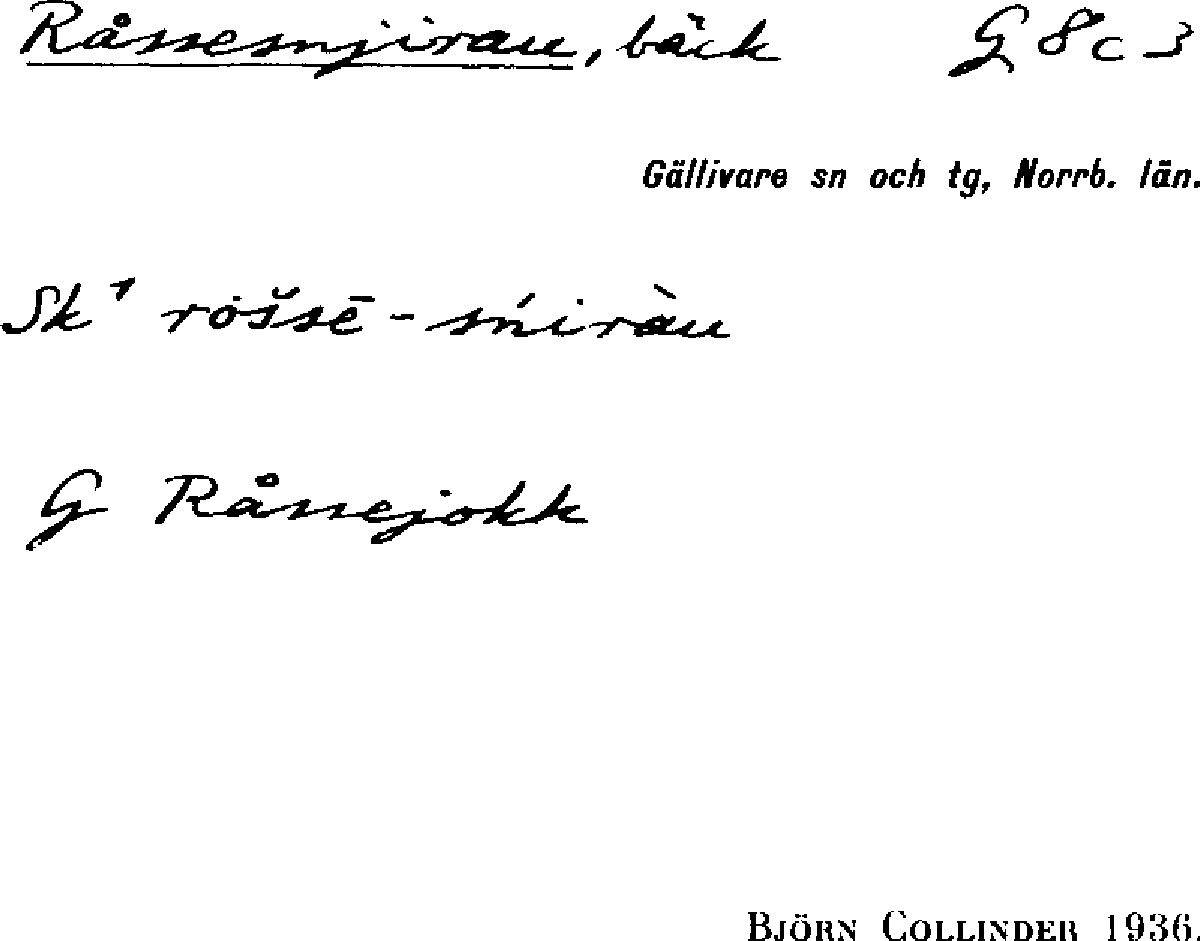 Råssesnjirau, bäck G 8 c 3
Gällivare sn och tg, Norrb. län.
Sk¹ rȯšsē - sńiràu
G Råssejokk
BJÖRN COLLINDER 1936.